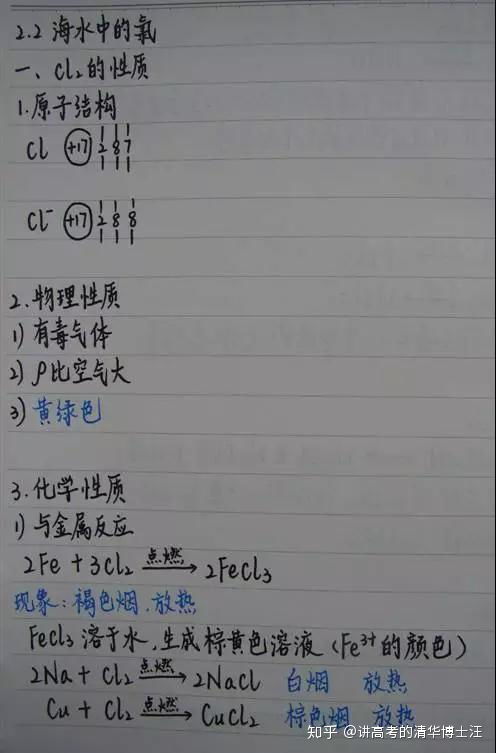 2.2 海水中的氯
一、Cl₂的性质
1.原子结构
Cl +17 2 8 7
Cl⁻ +17 2 8 8
2.物理性质
1) 有毒气体
2) ρ比空气大
3) 黄绿色
3.化学性质
1) 与金属反应
2Fe + 3Cl₂ 点燃→ 2FeCl₃
现象:褐色烟.放热
FeCl₃溶于水,生成棕黄色溶液(Fe³⁺的颜色)
2Na + Cl₂ 点燃→ 2NaCl 白烟 放热
Cu + Cl₂ 点燃→ CuCl₂ 棕色烟 放热
知乎 @讲高考的清华博士汪